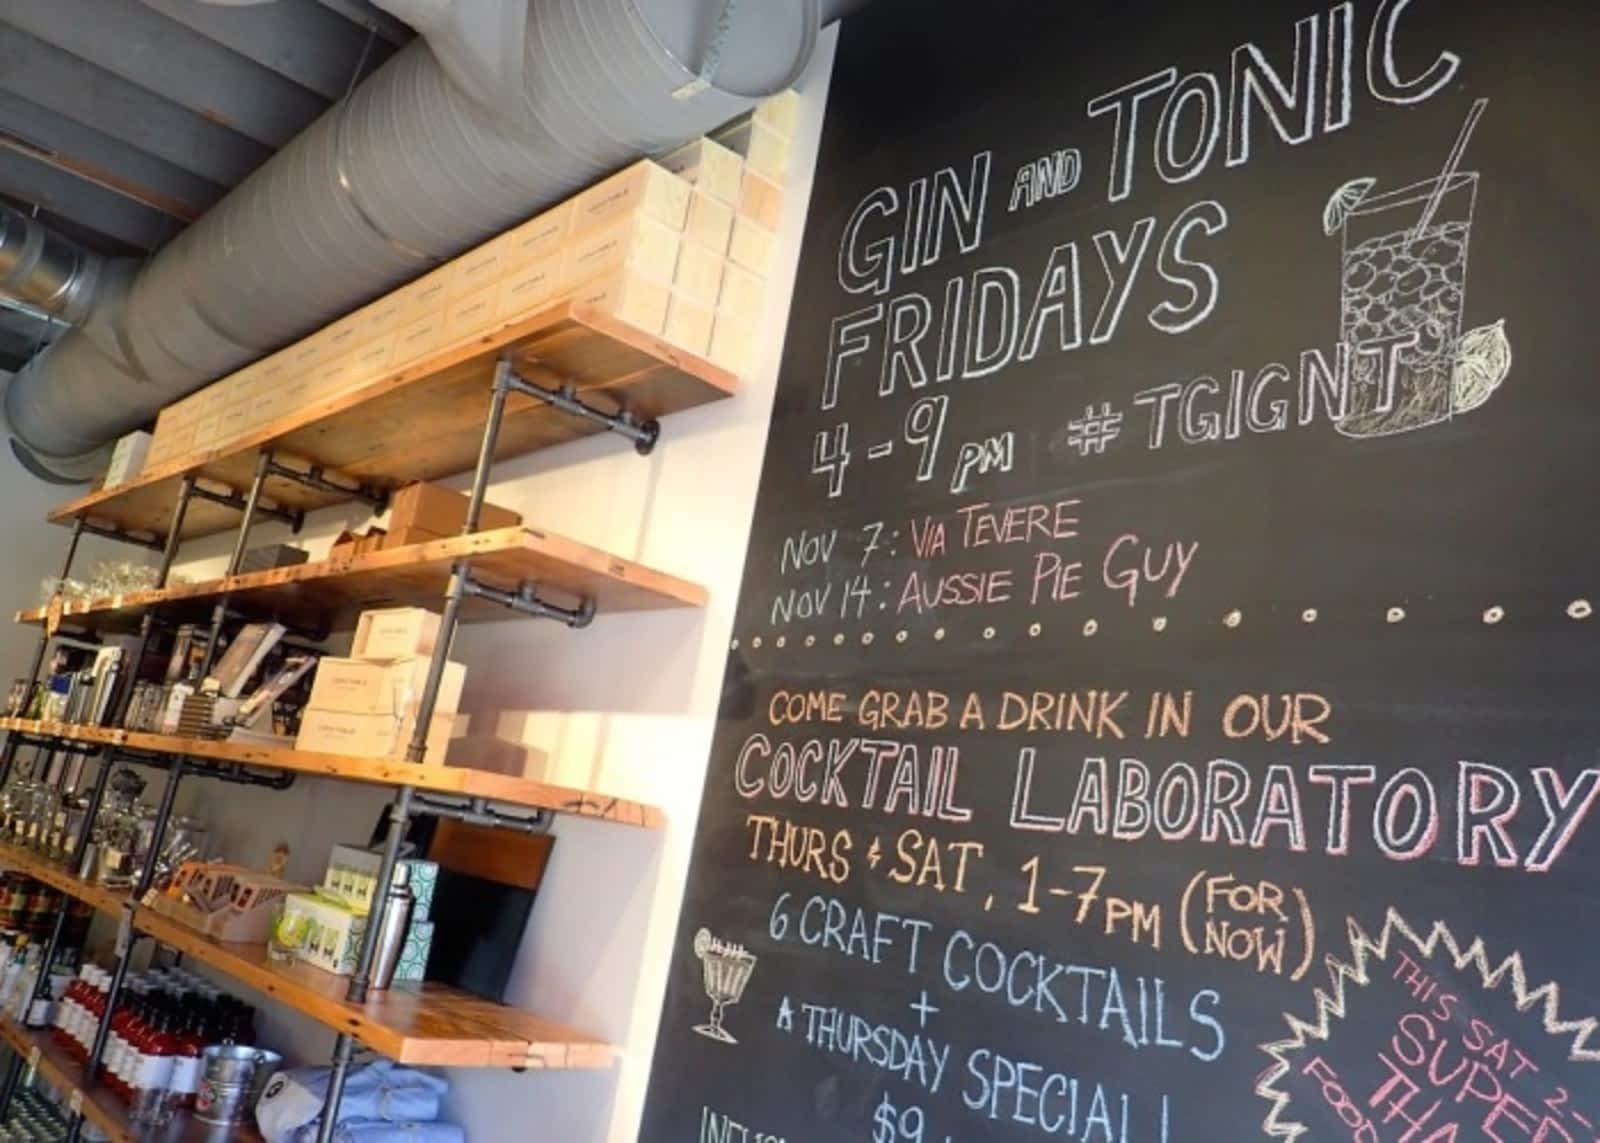 GIN AND TONIC
FRIDAYS
4-9 PM #TGIGNT
NOV 7: VIA TEVERE
NOV 14: AUSSIE PIE GUY
COME GRAB A DRINK IN OUR
COCKTAIL LABORATORY
THURS & SAT, 1-7PM (FOR NOW)
6 CRAFT COCKTAILS
+
A THURSDAY SPECIAL!
$9
THIS SAT 2-